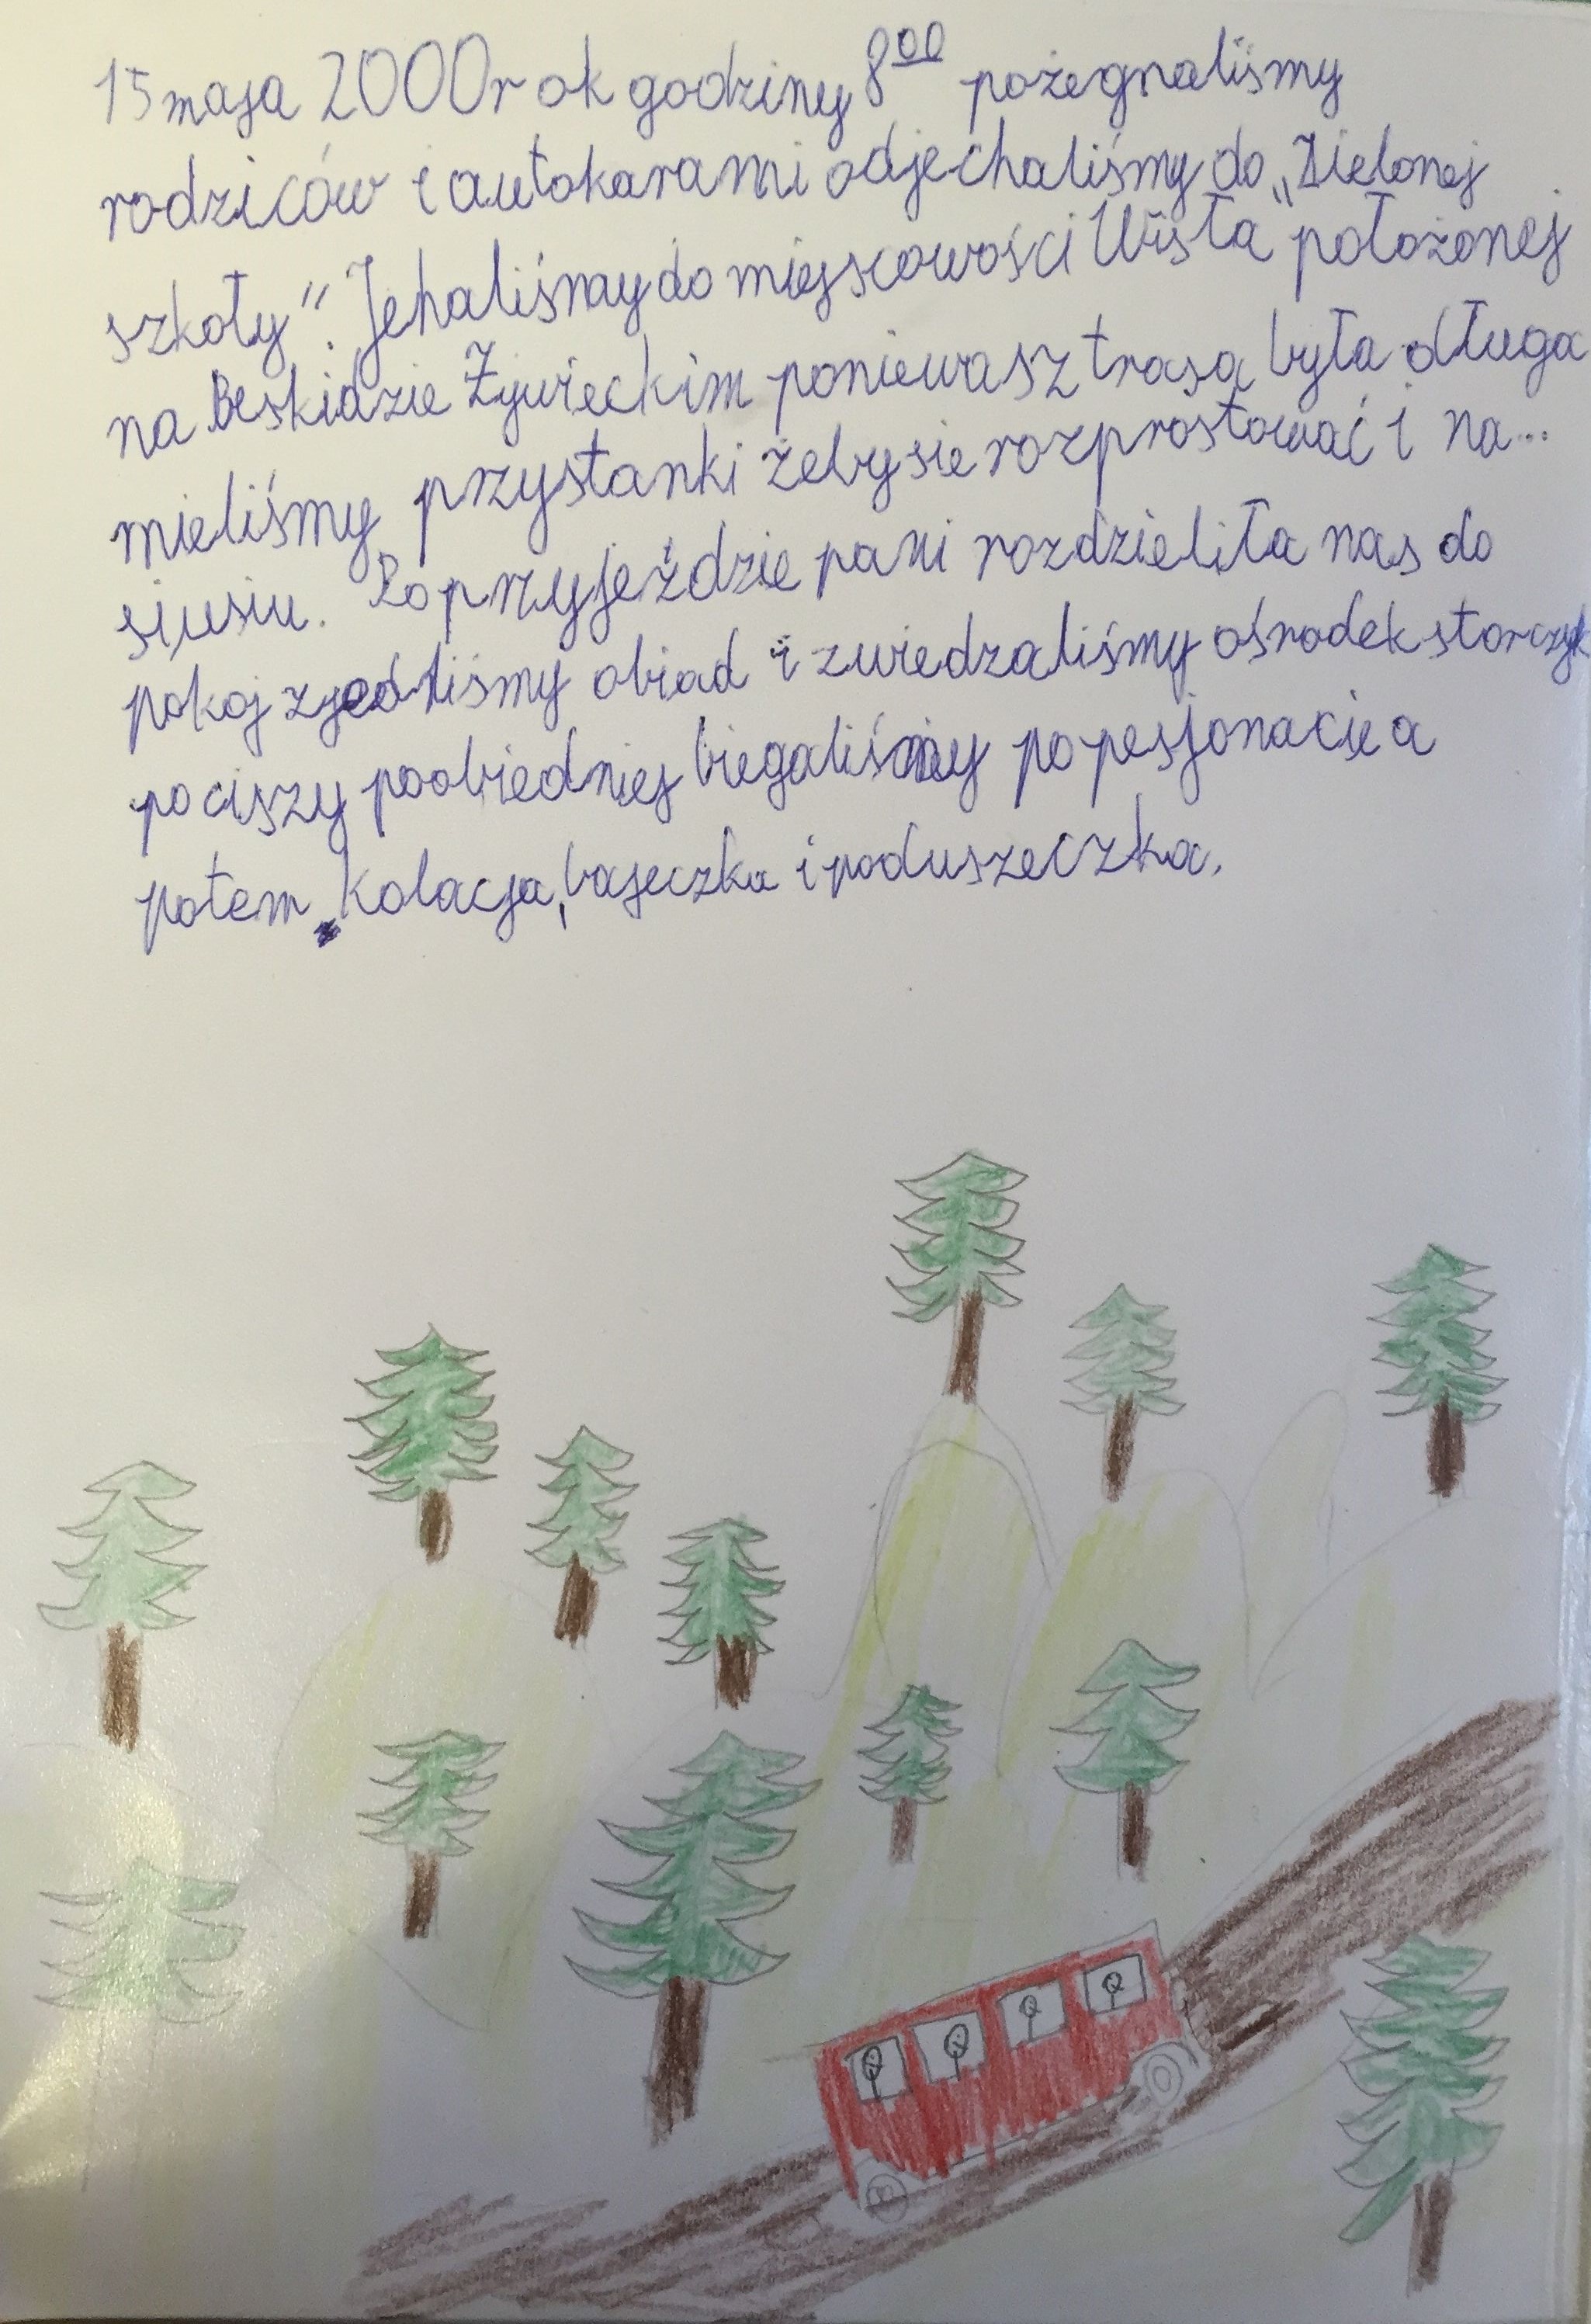 15 maja 2000r ok godziny 8⁰⁰ pożegnaliśmy
rodziców i autokarami odjechaliśmy do „Zielonej
szkoły". Jehaliśmy do miejscowości Wisła" położonej
na Beskidzie Żywieckim poniewasz trasa była długa
mieliśmy przystanki żeby sie rozprostować i na...
siusiu. Po przyjeździe pani rozdzieliła nas do
pokoj zjedliśmy obiad i zwiedzaliśmy ośrodek storczyk
po ciszy poobiedniej biegaliśmy po pesjonacie a
potem kolacja, bajeczka i poduszeczka.